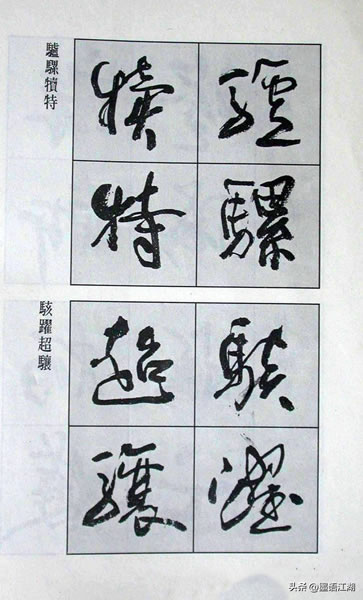 驢騾
犢特
驢騾犢特
駭躍
超驤
駭躍超驤
头条